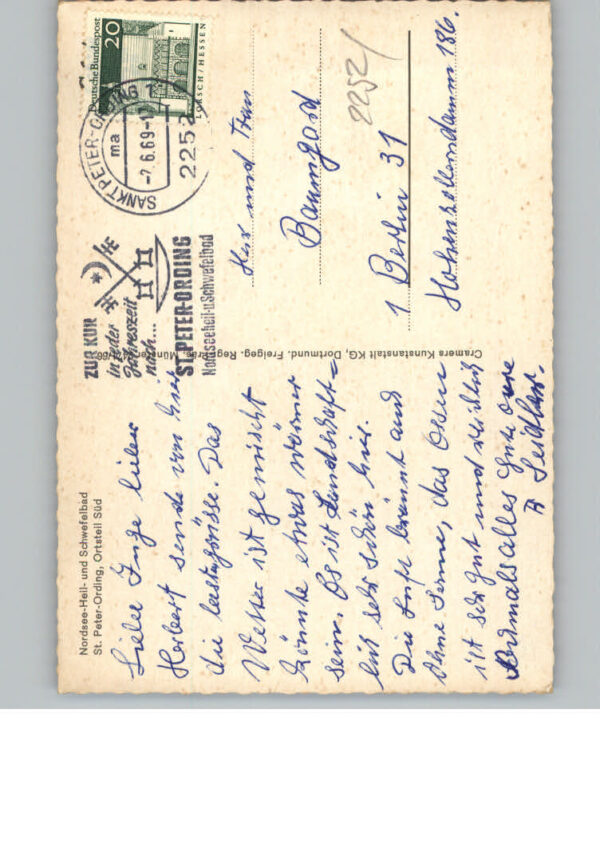 Nordsee-Heil- und Schwefelbad
St. Peter-Ording, Ortsteil Süd
Liebe Inge lieber
Herbert sende von hier
die Grüsse. Das
Wetter ist gemischt
könnte etwas wärmer
sein. Es ist Landschaft=
lich sehr schön hier.
Die Luft bräunt auch
ohne Sonne, das Essen
ist sehr gut und
Nochmals alles Gute
Cramers Kunstanstalt KG, Dortmund. Freigeg. Reg.
ZUR KUR
in jeder
Jahreszeit
nach...
ST. PETER-ORDING
Nordseeheil-u.Schwefelbad
SANKT PETER-ORDING 1
ma
-7.6.69-1
2252
Deutsche Bundespost
20
LORSCH/HESSEN
Herr und Frau
Baumgard
2252/
1 Berlin 31
Hohenzollerndamm 186.